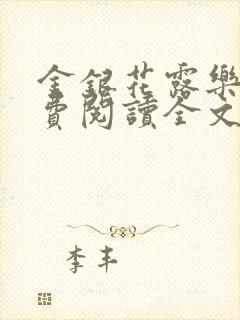 金銀花露樂
費閱讀全文
李丰